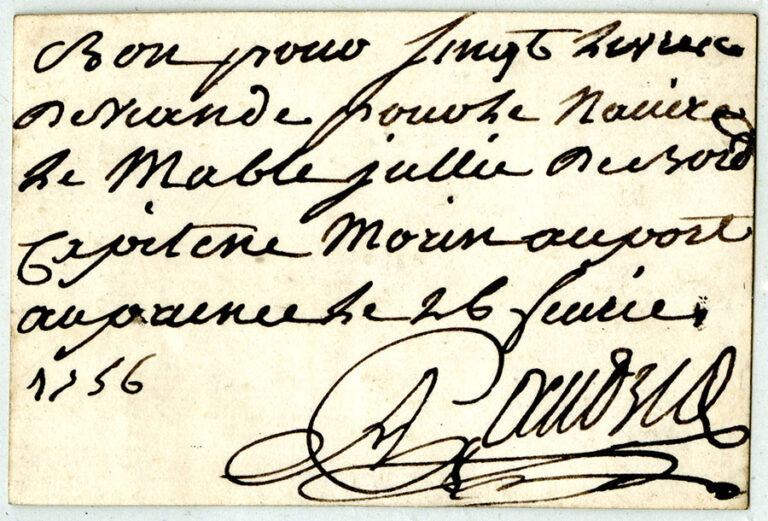 Bon pour vingt Livres
De viande pour Le Navire
Le Mable jullie De Bord
Capitene Morin au port
au prince Le 26 fevrie
1756